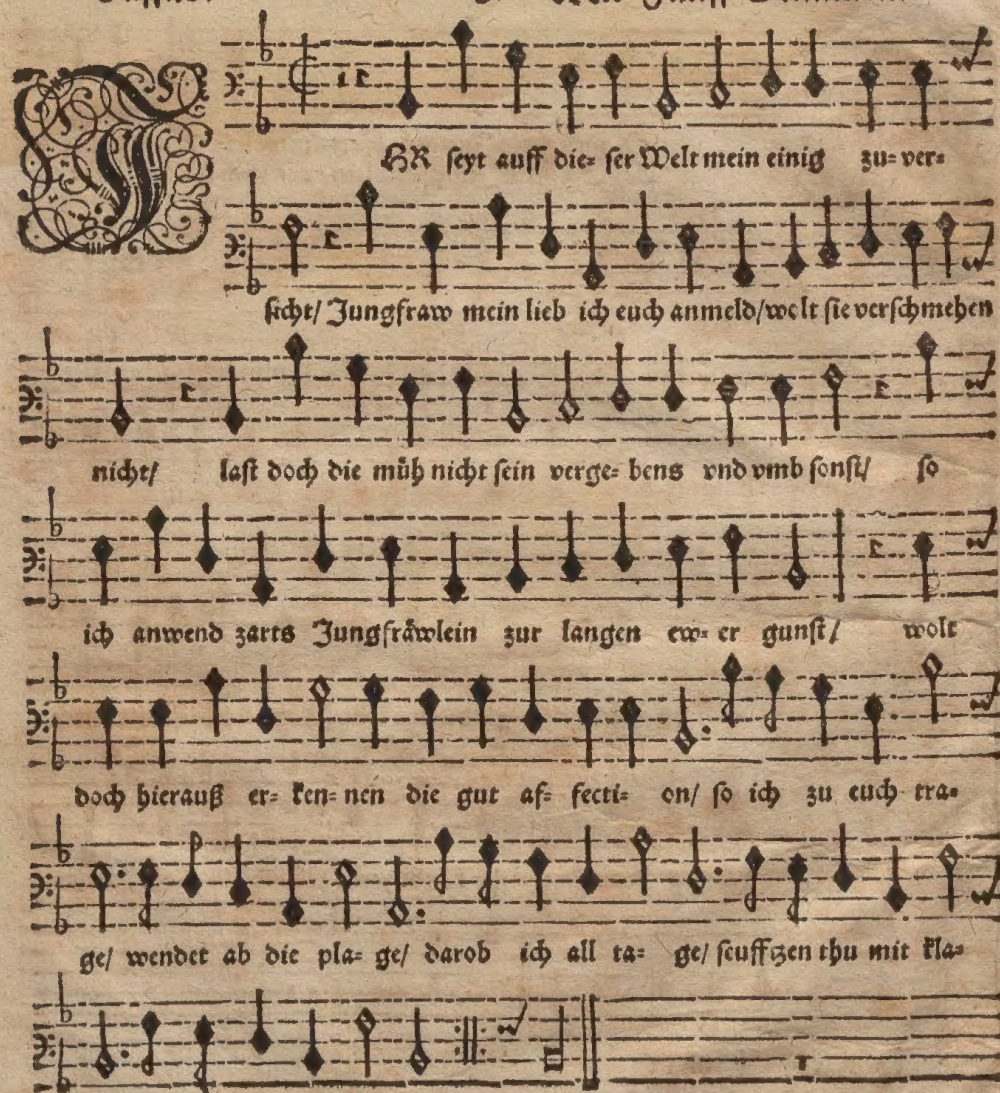 IHR seyt auff die= ser Welt mein einig zu= ver=
sicht/ Jungfraw mein lieb ich euch anmeld/ wolt sie verschmehen
nicht/ last doch die müh nicht sein verge= bens vnd vmb sonst/ so
ich anwend zarts Jungfräwlein zur langen ew= er gunst/ wolt
doch hierauß er= ken= nen die gut af= fecti= on/ so ich zu euch tra=
ge/ wendet ab die pla= ge/ darob ich all ta= ge/ seufftzen thu mit kla=